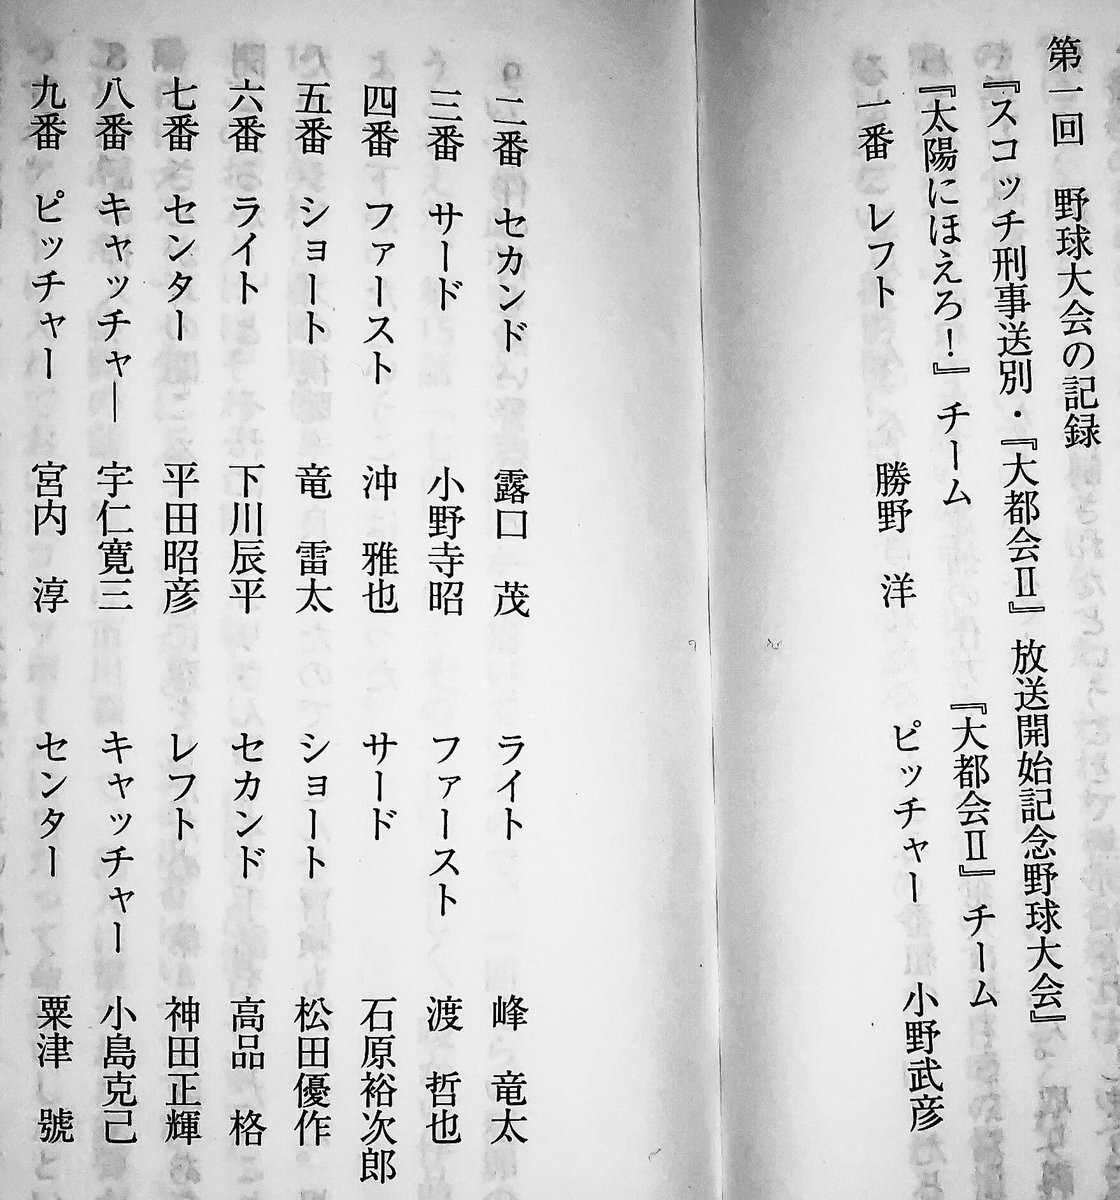 第一回　野球大会の記録
『スコッチ刑事送別・『大都会Ⅱ』放送開始記念野球大会』
『太陽にほえろ！』チーム　『大都会Ⅱ』チーム
一番　レフト　勝野　洋　ピッチャー　小野武彦
二番　セカンド　露口　茂　ライト　峰　竜太
三番　サード　小野寺昭　ファースト　渡　哲也
四番　ファースト　沖　雅也　サード　石原裕次郎
五番　ショート　竜　雷太　ショート　松田優作
六番　ライト　下川辰平　セカンド　高品　格
七番　センター　平田昭彦　レフト　神田正輝
八番　キャッチャ―　宇仁寛三　キャッチャー　小島克己
九番　ピッチャー　宮内　淳　センター　粟津　號